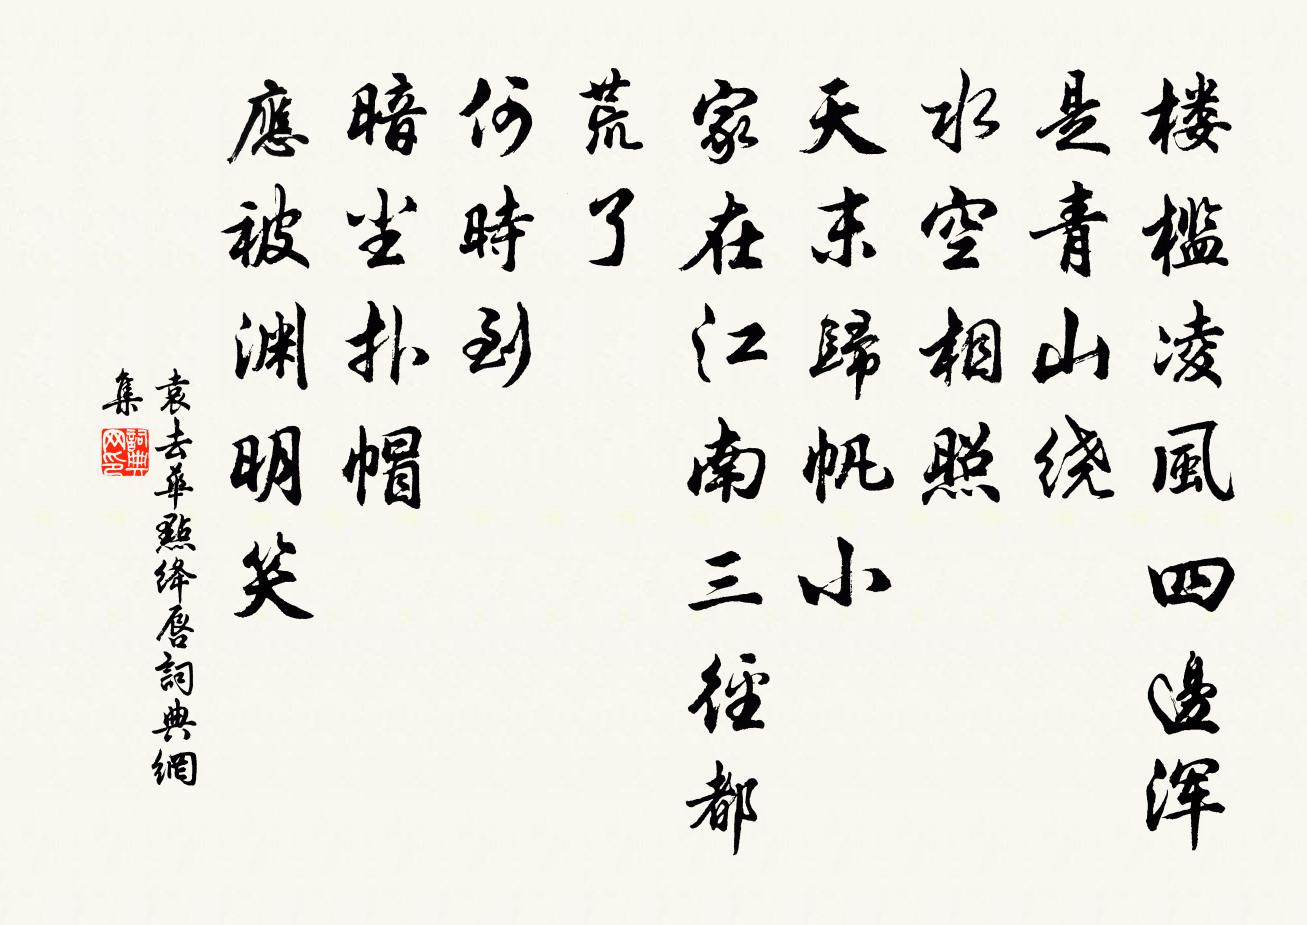 楼槛凌風四邊浑
是青山绕
水空相照
天末歸帆小
家在江南三径都
荒了
何時到
暗尘扑帽
應被渊明笑
袁去華點绛唇詞典網
集
詞典网印